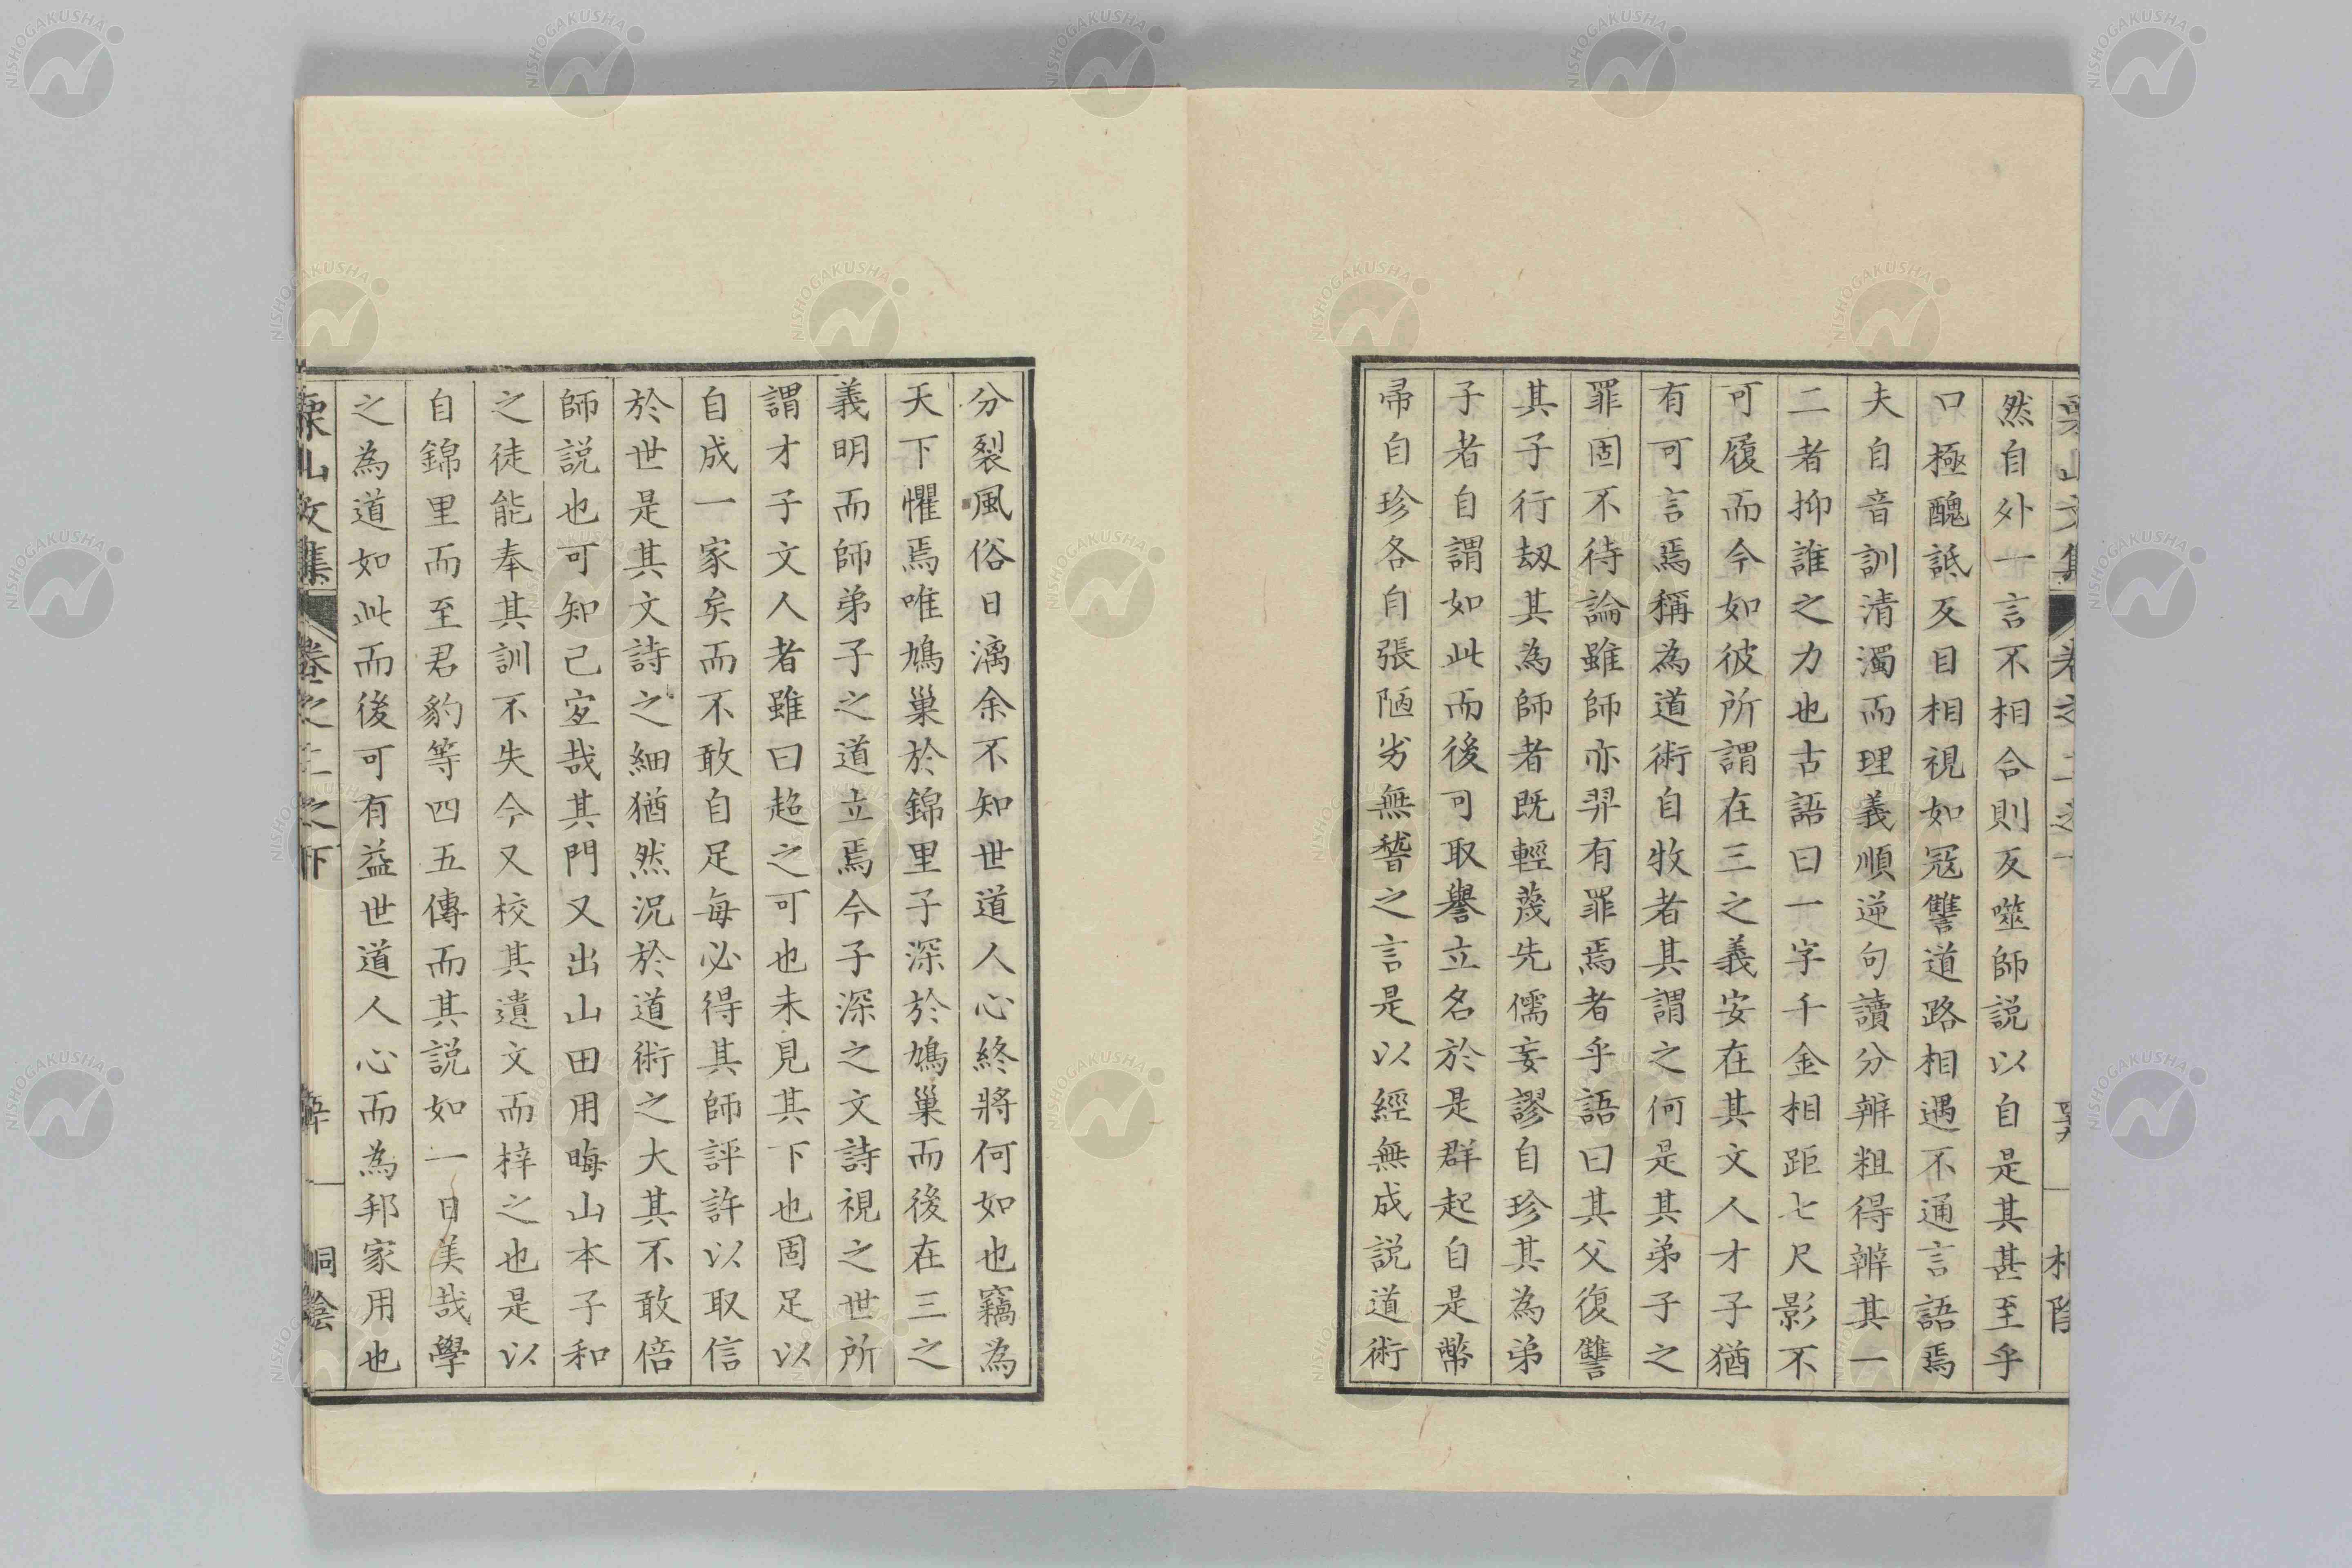 然自外一言不相合則反噬師説以自是其甚至乎
口極醜詆反目相視如冦讐道路相遇不通言語焉
夫自音訓清濁而理義順逆句讀分辨粗得辨其一
二者抑誰之力也古語曰一字千金相距七尺影不
可履而今如彼所謂在三之義安在其文人才子猶
有可言焉稱為道術自牧者其謂之何是其弟子之
罪固不待論雖師亦羿有罪焉者乎語曰其父復讐
其子行刼其為師者既輕蔑先儒妄謬自珍其為弟
子者自謂如此而後可取譽立名於是群起自是幣
帚自珍各自張陋劣無稽之言是以經無成説道術
分裂風俗日漓余不知世道人心終將何如也竊為
天下懼焉唯鳩巢於錦里子深於鳩巢而後在三之
義明而師弟子之道立焉今子深之文詩視之世所
謂才子文人者雖曰超之可也未見其下也固足以
自成一家矣而不敢自足每必得其師評許以取信
於世是其文詩之細猶然況於道術之大其不敢倍
師説也可知已㝎哉其門又出山田用晦山本子和
之徒能奉其訓不失今又校其遺文而梓之也是以
自錦里而至君豹等四五傳而其説如一日美哉學
之為道如此而後可有益世道人心而為邦家用也
栗山文集 卷之二之下
NISHOGAKUSHA